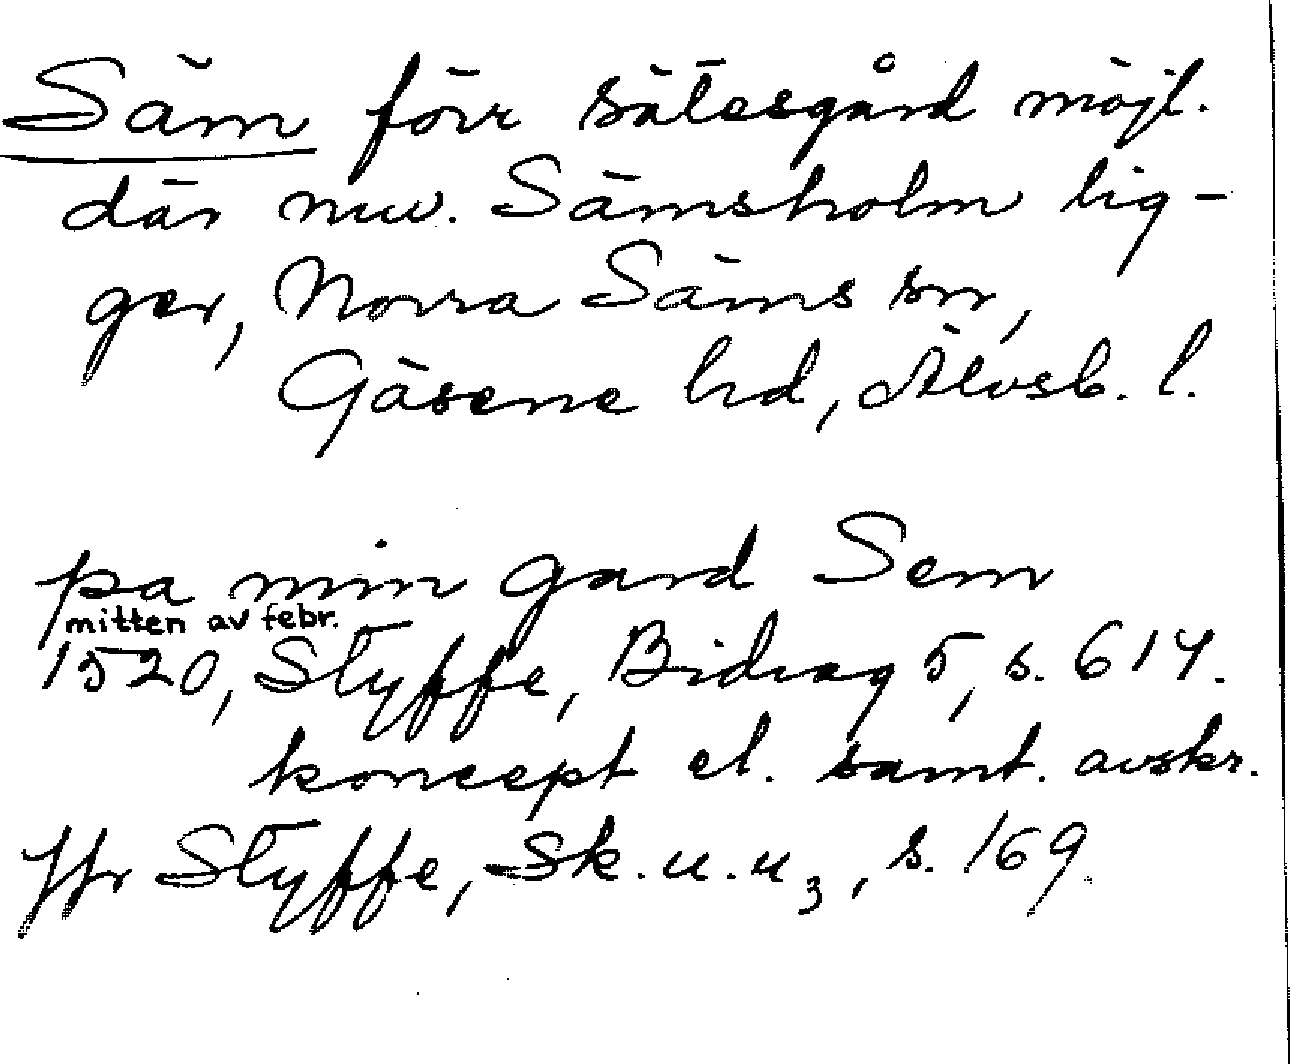 Säm förr sätesgård möjl.
där nuv. Sämsholm lig-
ger, Norra Säms sn,
Gäsene hd, Älvsb. l.
pa min gard Sem
mitten av febr.
1520, Styffe, Bidrag 5, s. 614.
koncept el. samt. avskr.
Jfr Styffe, Sk.u.u₃, s. 169.